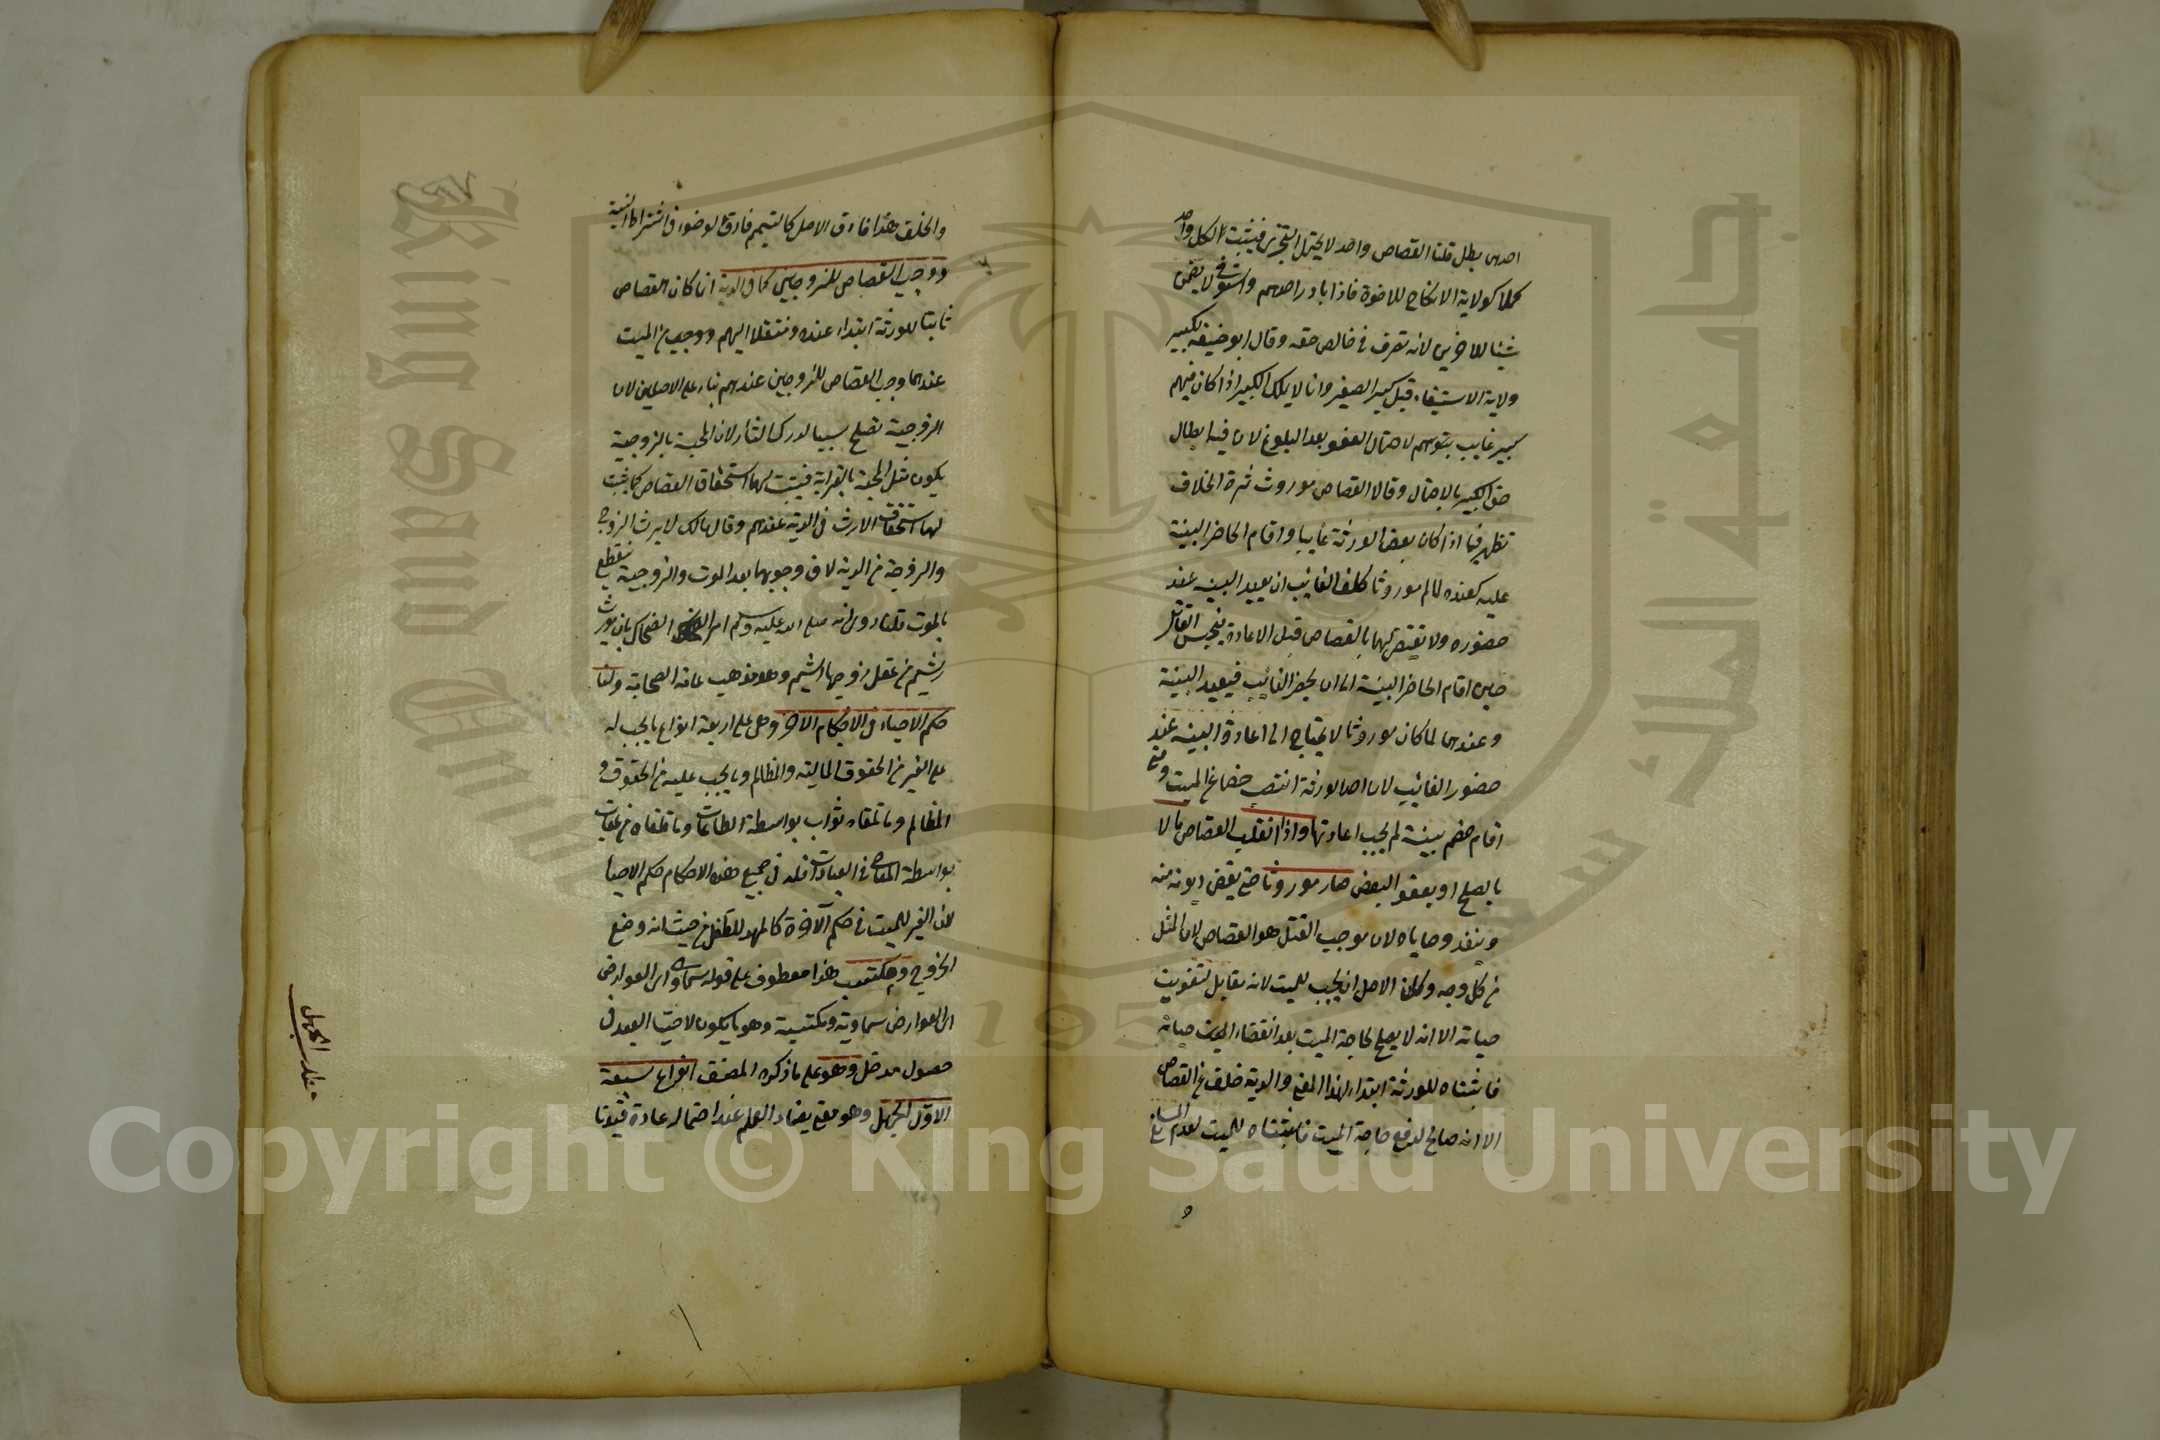 احدهم بطل قلنا القصاص واحد لا يحتمل التجزي فيثبت لكل واحد
كملا كولاية الانكاح للاخوة فاذا بادر احدهم واستوفى لا يضمن
شيئا للاخرين لانه تصرف في خالص حقه وقال ابو حنيفة للكبير
ولاية الاستيفاء قبل كبر الصغير وانما لا يملك الكبير اذا كان فيهم
كبير غايب بتوهم لاحتمال العفو بعد البلوغ لان فيه ابطال
حق الكبير بالاحتمال وقالا القصاص موروث ثمرة الخلاف
تظهر فيما اذا كان بعض الورثة غايبا واقام الحاضر البينة
عليه كعنده لما لم موروثا كلف الغايب ان يعيد البينة عند
حضوره ولا يقتص لهما بالقصاص قبل الاعادة فيحبس القاتل
حين اقام الحاضر البينة الى ان يحضر الغائب فيعيد البينة
وعندهما لما كان موروثا لا يحتاج الى اعادة البينة عند
حضور الغائب لان احد الورثة انتصب خصما عن الميت ومتى
اقام خصم بينة لم يجب اعادتها واذا انقلب القصاص مالا
بالصلح او بعفو البعض صار موروثا حتى يقضى ديونه منه
وينفذ وصاياه لان موجب القتل هو القصاص لان المثل
من كل وجه وكان الاصل ان يجب للميت لانه مقابل لتفويت
حياته الا انه لا يصلح لحاجة الميت بعد انقضاء الحيوة حياته
فاثبتناه للورثة ابتداء لهذا المعنى والدية خلف عن القصاص
الا انه صالح لدفع حاجة الميت فاثبتناه للميت لعدم المانع
والخلف هذا فارق الاصل كالتيمم فارق الوضوء في اشتراط النية
ووجب القصاص للزوجين كما في الدية ان كان القصاص
ثابتا للورثة ابتداء عنده ومنتقلا اليهم ووجب من الميت
عندهما وجب القصاص للزوجين عندهم بناء على الاصلين لان
الزوجية تصلح سببا لدرك الثأر لان المحبة بالزوجية
يكون مثل المحبة بالقرابة فيثبت لهما استحقاق القصاص كما يثبت
لهما استحقاق الارث في الدية عندهم وقال مالك لا يرث الزوج
والزوجة من الدية لان وجوبها بعد الموت والزوجية ينقطع
بالموت قلنا روي انه صلى الله عليه وسلم امر الضحاك بان يورث
اشيم من عقل زوجها اشيم وهو مذهب عامة الصحابة وله
حكم الاحياء في الاحكام الاخر وهي على اربعة انواع ما يجب له
على الغير من الحقوق المالية والمظالم وما يجب عليه من الحقوق و
المظالم وما تلقاه ثواب بواسطة الطاعات وما تلقاه من عقاب
بواسطة المعاصي في العبادات فله في جميع هذه الاحكام حكم الاحيا
لان القبر للميت في حكم الآخرة كالمهد للطفل من حيث انه وضع
الخروج ومكتسب هذا معطوف على قوله سماوي اي العوارض
اي العوارض سماوية ومكتسبة وهو ما يكون لاختيار العبد في
حصول مدخل وهو على ما ذكره المصنف انواع سبعة
الاول الجهل وهو معنى يضاد العلم عند احتماله عادة فقولنا
الجهل